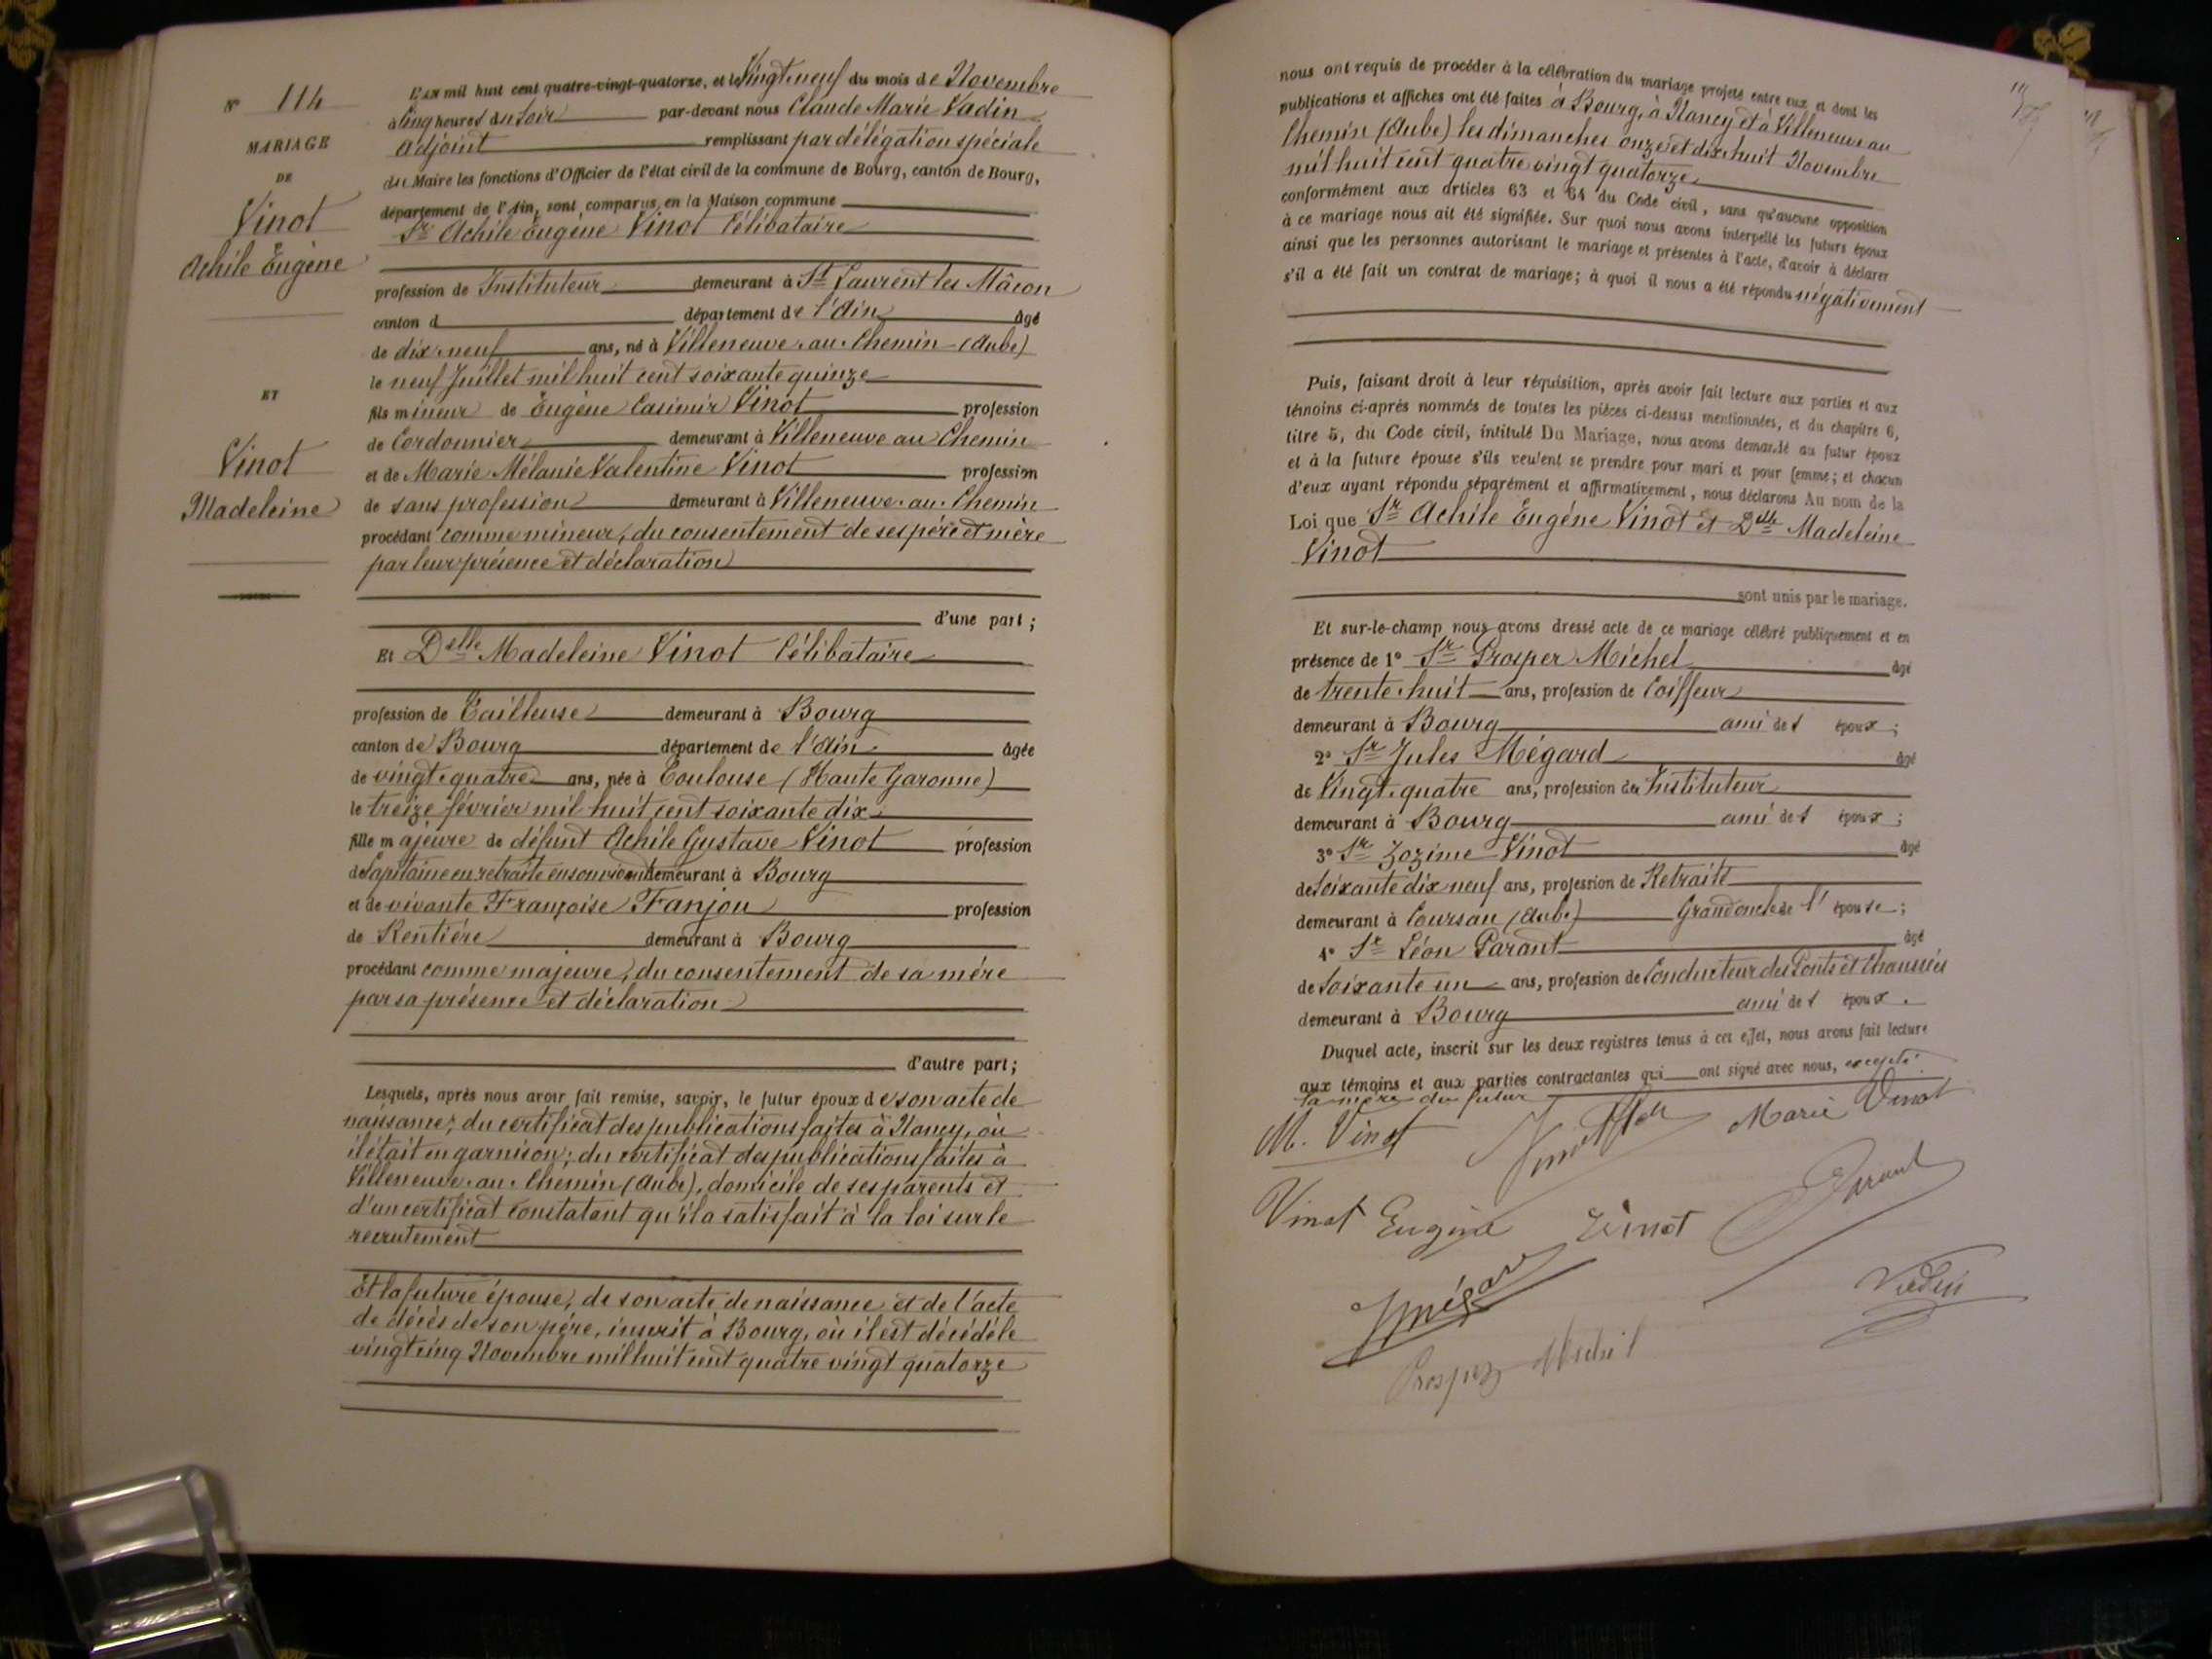 N° 114
MARIAGE
DE
Vinot
Achile Eugène
ET
Vinot
Madeleine
L'an mil huit cent quatre-vingt-quatorze, et le Vingt-neuf du mois de Novembre
à Cinq heures du Soir par-devant nous Claude Marie Vadin
Adjoint remplissant par délégation spéciale
du Maire les fonctions d'Officier de l'état civil de la commune de Bourg, canton de Bourg,
département de l'Ain, sont comparus en la Maison commune
Sr Achile Eugène Vinot Célibataire
profession de Instituteur demeurant à St Laurent les Mâcon
canton d département de l'Ain âgé
de dix-neuf ans, né à Villeneuve-au-Chemin (Aube)
le neuf Juillet mil huit cent soixante quinze
fils mineur de Eugène Casimir Vinot profession
de Cordonnier demeurant à Villeneuve au Chemin
et de Marie Mélanie Valentine Vinot profession
de sans profession demeurant à Villeneuve-au-Chemin
procédant comme mineur, du consentement de ses père et mère
par leur présence et déclaration
d'une part ;
Et Delle Madeleine Vinot Célibataire
profession de Tailleuse demeurant à Bourg
canton de Bourg département de l'Ain âgée
de vingt-quatre ans, née à Toulouse (Haute Garonne)
le treize février mil huit cent soixante dix
fille majeure de défunt Achile Gustave Vinot profession
de Capitaine en retraite en son vivant demeurant à Bourg
et de vivante Françoise Fanjou profession
de Rentière demeurant à Bourg
procédant comme majeure, du consentement de sa mère
par sa présence et déclaration
d'autre part ;
Lesquels, après nous avoir fait remise, savoir, le futur époux de son acte de
naissance, du certificat des publications faites à Nancy, où
il était en garnison ; du certificat des publications faites à
Villeneuve-au-Chemin (Aube), domicile de ses parents et
d'un certificat constatant qu'il a satisfait à la loi sur le
recrutement
Et la future épouse, de son acte de naissance et de l'acte
de décès de son père, inscrit à Bourg, où il est décédé le
vingt cinq Novembre mil huit cent quatre vingt quatorze
nous ont requis de procéder à la célébration du mariage projeté entre eux, et dont les
publications et affiches ont été faites à Bourg, à Nancy et à Villeneuve au
Chemin (Aube) les dimanches onze et dix huit Novembre
mil huit cent quatre vingt quatorze
conformément aux articles 63 et 64 du Code civil, sans qu'aucune opposition
à ce mariage nous ait été signifiée. Sur quoi nous avons interpellé les futurs époux
ainsi que les personnes autorisant le mariage et présentes à l'acte, d'avoir à déclarer
s'il a été fait un contrat de mariage ; à quoi il nous a été répondu négativement
Puis, faisant droit à leur réquisition, après avoir fait lecture aux parties et aux
témoins ci-après nommés de toutes les pièces ci-dessus mentionnées, et du chapitre 6,
titre 5, du Code civil, intitulé Du Mariage, nous avons demandé au futur époux
et à la future épouse s'ils veulent se prendre pour mari et pour femme ; et chacun
d'eux ayant répondu séparément et affirmativement, nous déclarons Au nom de la
Loi que Sr Achile Eugène Vinot et Delle Madeleine
Vinot
sont unis par le mariage.
Et sur-le-champ nous avons dressé acte de ce mariage célébré publiquement et en
présence de 1° Sr Prosper Michel âgé
de trente-huit ans, profession de Coiffeur
demeurant à Bourg ami des époux ;
2° Sr Jules Mégard âgé
de Vingt-quatre ans, profession de Instituteur
demeurant à Bourg ami des époux ;
3° Sr Zozime Vinot âgé
de Soixante dix neuf ans, profession de Retraité
demeurant à Coursan (Aube) Grand oncle de l'épouse ;
4° Sr Léon Parant âgé
de Soixante un ans, profession de Conducteur des Ponts et Chaussées
demeurant à Bourg ami des époux.
Duquel acte, inscrit sur les deux registres tenus à cet effet, nous avons fait lecture
aux témoins et aux parties contractantes qui ont signé avec nous, excepté
la mère du futur
M. Vinot Marie Vinot
Vinot Eugène Vinot Parant
J Mégard Vadin
Prosper Michel